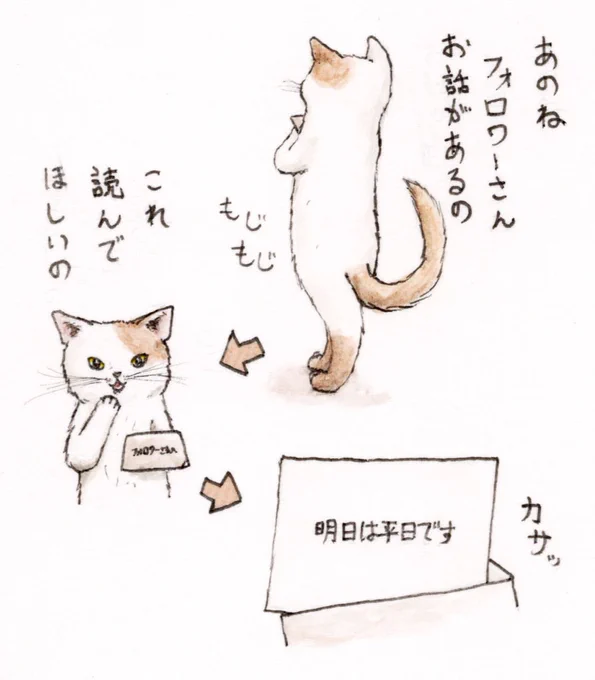 あのね
フォロワーさん
お話があるの
もじ
もじ
これ
読んで
ほしいの
フォロワーさんへ
明日は平日です
カサッ